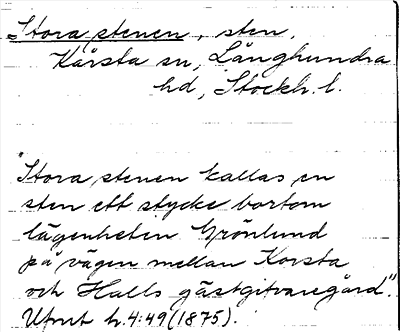 Stora stenen, sten,
Kårsta sn, Långhundra
hd, Stockh. l.
"Stora stenen kallas en
sten ett stycke bortom
lägenheten Grönlund
på vägen mellan Korsta
och Halls gästgifvaregård".
Upnt h. 4:49 (1875).